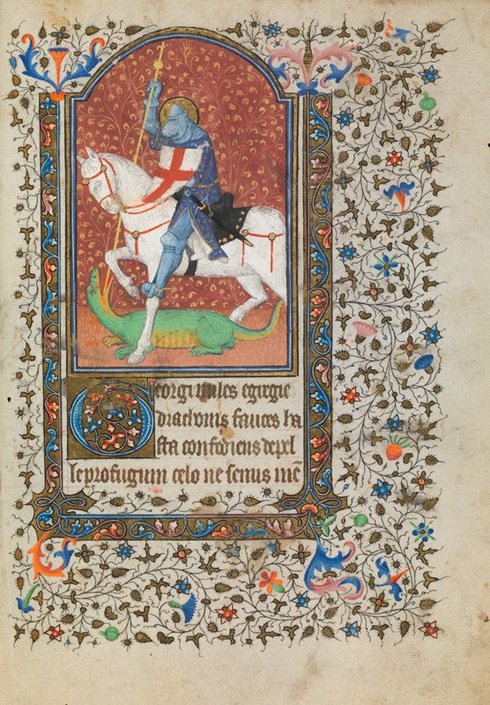 Georgi miles egregie
draconis fauces ha
sta confodiens depel
le profugum celo ne semus mē